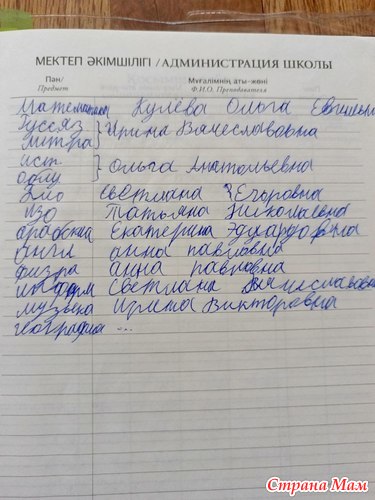 МЕКТЕП ӘКІМШІЛІГІ / АДМИНИСТРАЦИЯ ШКОЛЫ
Пән/ Мұғалімнің аты-жөні
Предмет Ф.И.О. Преподавателя
Математика Кулева Ольга
Русс яз } Ирина Вячеславовна
Литра
ист. } Ольга Анатольевна
общ
био Светлана Егоровна
ИЗО Татьяна Николаевна
Екатерина Эдуардовна
англ анна павловна
физра анна павловна
информ Светлана Вячеславовна
музыка Ирина Викторовна
география ...
Страна Мам